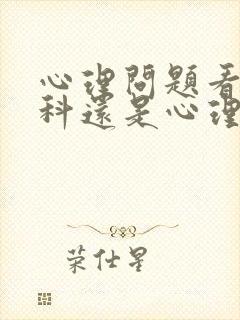 心理問題看
科還是心理
荣仕星